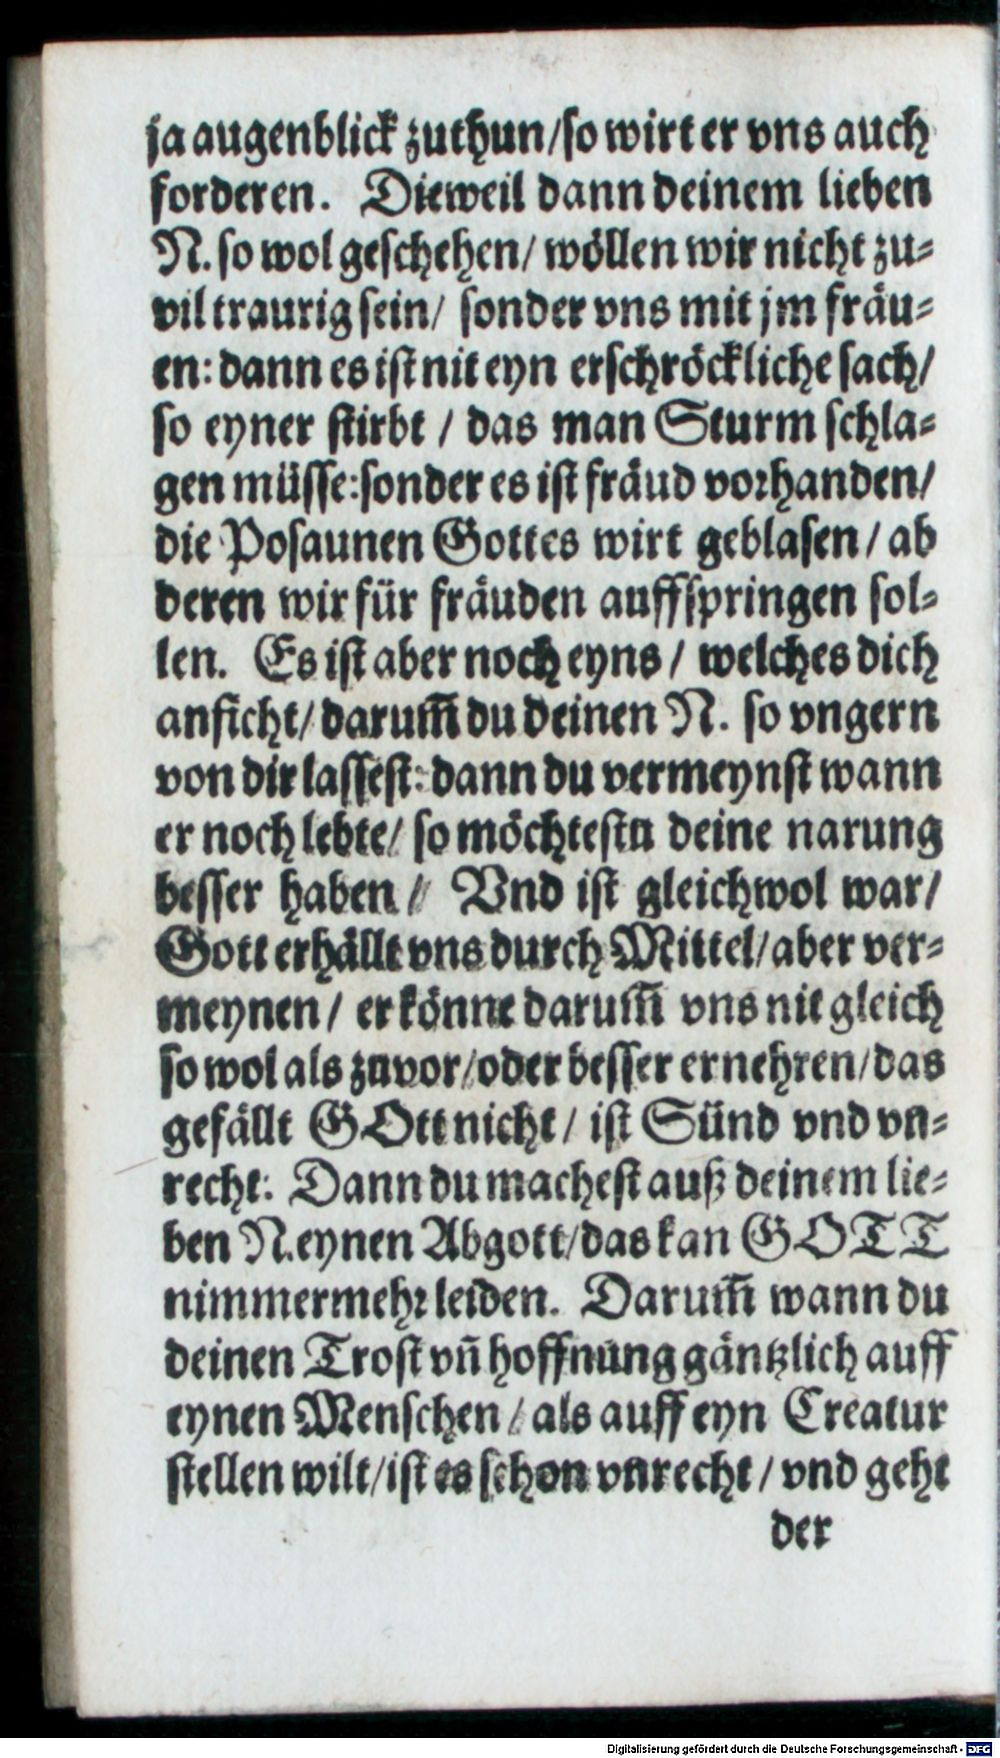 ja augenblick zuthun/so wirt er vns auch
forderen. Dieweil dann deinem lieben
N. so wol geschehen/ wöllen wir nicht zu⸗
vil traurig sein/ sonder vns mit jm fräu⸗
en: dann es ist nit eyn erschröckliche sach/
so eyner stirbt / das man Sturm schla⸗
gen müsse:sonder es ist fräud vorhanden/
die Posaunen Gottes wirt geblasen/ ab
deren wir für fräuden auffspringen sol⸗
len. Es ist aber noch eyns / welches dich
anficht/ darum̃ du deinen N. so vngern
von dir lassest: dann du vermeynst wann
er noch lebte/ so möchtestu deine narung
besser haben / Vnd ist gleichwol war/
Gott erhällt vns durch Mittel/aber ver⸗
meynen / er könne darum̃ vns nit gleich
so wol als zuvor/oder besser ernehren/das
gefällt GOtt nicht / ist Sünd vnd vn⸗
recht: Dann du machest auß deinem lie⸗
ben N. eynen Abgott/das kan GOTT
nimmermehr leiden. Darum̃ wann du
deinen Trost vñ hoffnung gäntzlich auff
eynen Menschen / als auff eyn Creatur
stellen wilt/ist es schon vnrecht / vnd geht
der
Digitalisierung gefördert durch die Deutsche Forschungsgemeinschaft - DFG